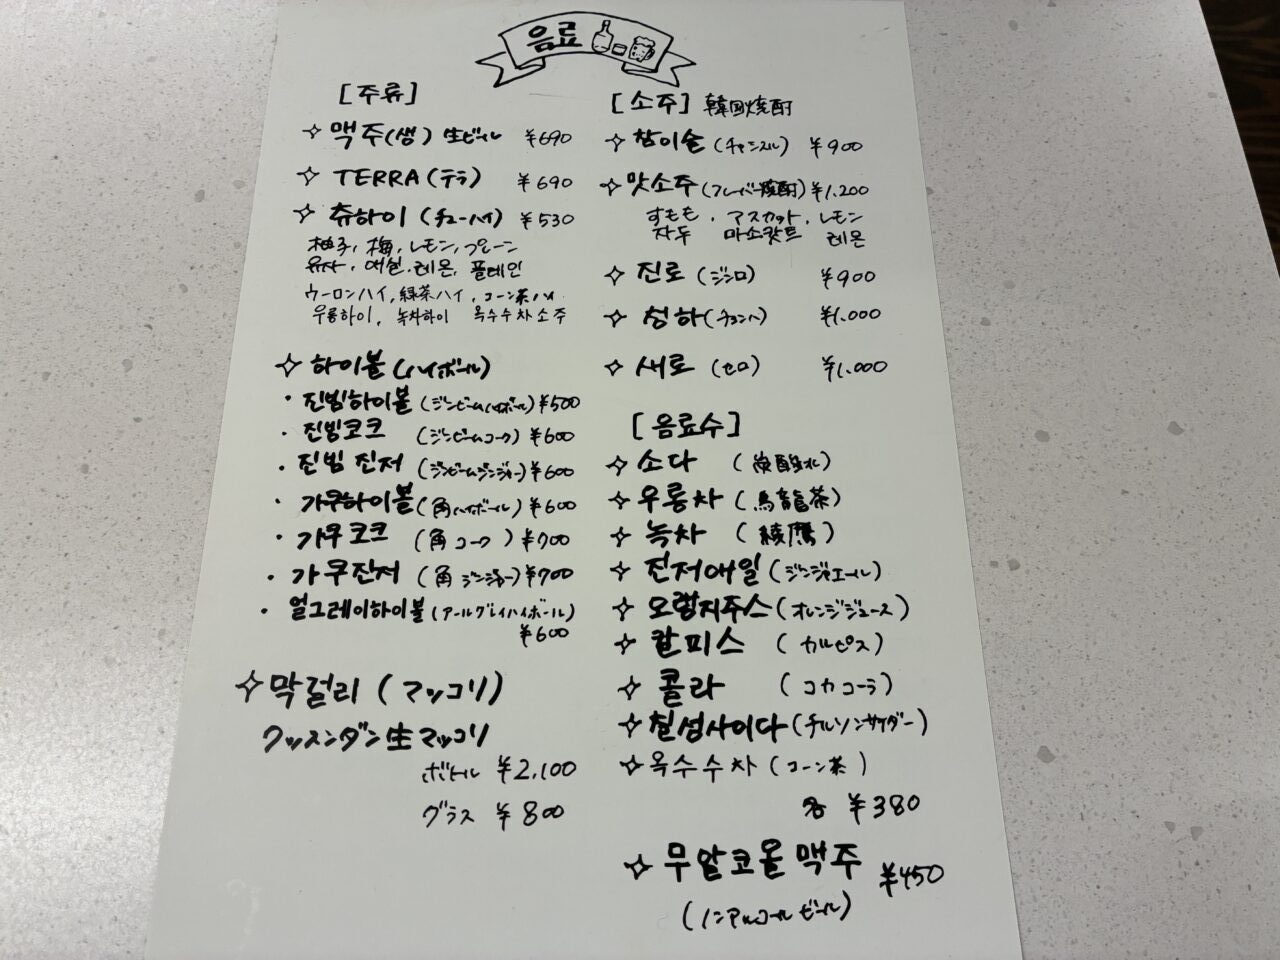 음료
[주류]
맥주(생) 生ビール ¥690
TERRA(テラ) ¥690
츄하이 (チューハイ) ¥530
柚子, 梅, レモン, プレーン
유자, 매실, 레몬, 플레인
ウーロンハイ, 緑茶ハイ, コーン茶ハイ
우롱하이, 녹차하이 옥수수차소주
하이볼 (ハイボール)
・진빔하이볼 (ジンビームハイボール) ¥500
・진빔코크 (ジンビームコーク) ¥600
・진빔진저 (ジンビームジンジャー) ¥600
・가쿠하이볼 (角ハイボール) ¥600
・가쿠코크 (角コーク) ¥700
・가쿠진저 (角ジンジャー) ¥700
・얼그레이하이볼 (アールグレイハイボール)
¥600
막걸리 (マッコリ)
クッスンダン生マッコリ
ボトル ¥2,100
グラス ¥800
[소주] 韓国焼酎
참이슬 (チャミスル) ¥900
맛소주 (フレーバー焼酎) ¥1,200
すもも, マスカット, レモン
자두 마스캇트 레몬
진로 (ジンロ) ¥900
청하 (チョンハ) ¥1,000
새로 (セロ) ¥1,000
[음료수]
소다 (炭酸水)
우롱차 (烏龍茶)
녹차 (綾鷹)
진저애일 (ジンジャエール)
오렌지주스 (オレンジジュース)
칼피스 (カルピス)
콜라 (コカコーラ)
칠성사이다 (チルソンサイダー)
옥수수차 (コーン茶)
各 ¥380
무알코올 맥주 ¥450
(ノンアルコールビール)